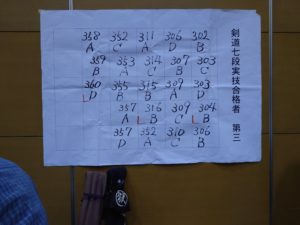 剣道七段実技合格者 第三
358 352 311 306 302
A C A D B
359 353 314 307 303
B A C B C
360 355 315 309 303
D B B A D
357 316 309 304
A B C B
357 352 310 306
D A C B